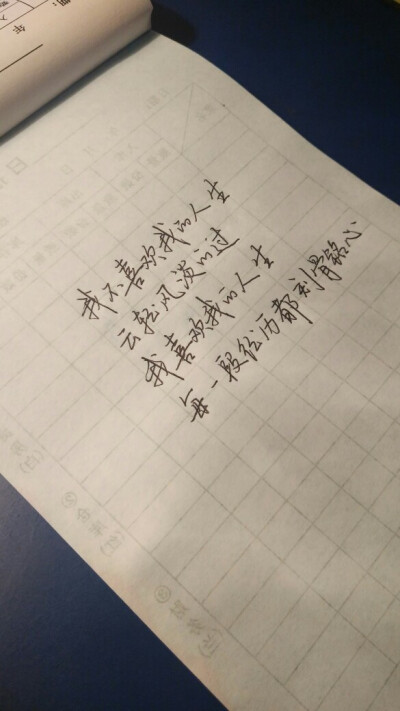 我不喜欢我的人生
云轻风淡的过
我喜欢我的人生
每一段经历都刻骨铭心
年